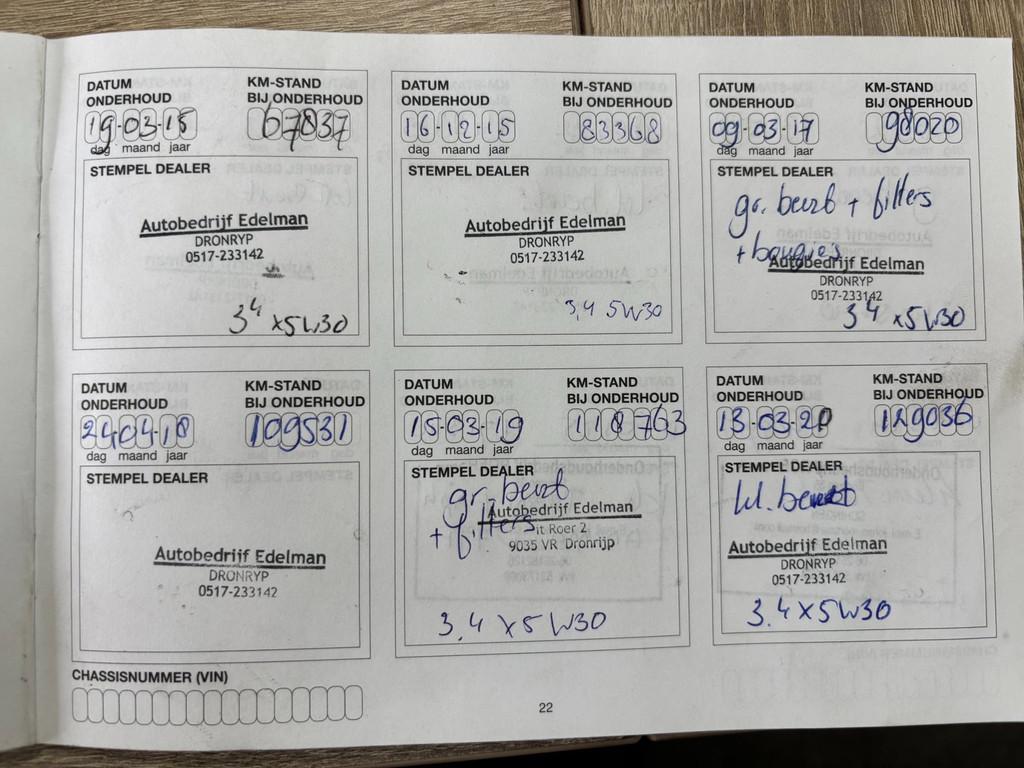 DATUM
ONDERHOUD
KM-STAND
BIJ ONDERHOUD
19-03-15
67837
dag maand jaar
STEMPEL DEALER
Autobedrijf Edelman
DRONRYP
0517-233142
3⁴ x5W30
DATUM
ONDERHOUD
KM-STAND
BIJ ONDERHOUD
16-12-15
83368
dag maand jaar
STEMPEL DEALER
Autobedrijf Edelman
DRONRYP
0517-233142
3,4 5W30
DATUM
ONDERHOUD
KM-STAND
BIJ ONDERHOUD
09-03-17
98020
dag maand jaar
STEMPEL DEALER
gr. beurt + filters
+ bougies
Autobedrijf Edelman
DRONRYP
0517-233142
3⁴ x5W30
DATUM
ONDERHOUD
KM-STAND
BIJ ONDERHOUD
24-04-18
109531
dag maand jaar
STEMPEL DEALER
Autobedrijf Edelman
DRONRYP
0517-233142
DATUM
ONDERHOUD
KM-STAND
BIJ ONDERHOUD
15-03-19
118763
dag maand jaar
STEMPEL DEALER
gr. beurt
+ filters
Autobedrijf Edelman
it Roer 2
9035 VR Dronrijp
3,4 x 5W30
DATUM
ONDERHOUD
KM-STAND
BIJ ONDERHOUD
13-03-20
129036
dag maand jaar
STEMPEL DEALER
kl. beurt
Autobedrijf Edelman
DRONRYP
0517-233142
3.4 x 5W30
CHASSISNUMMER (VIN)
22